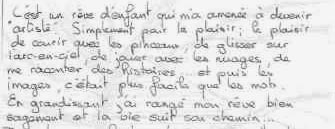 C'est un rêve d'enfant qui m'a amenée à devenir
"artiste". Simplement pour le plaisir ; le plaisir
de courir avec les pinceaux, de glisser sur
l'arc-en-ciel, de jouer avec les nuages, de
me raconter des histoires... et puis les
images, c'était plus facile que les mots.
En grandissant, j'ai rangé mon rêve bien
sagement et la vie suit son chemin...